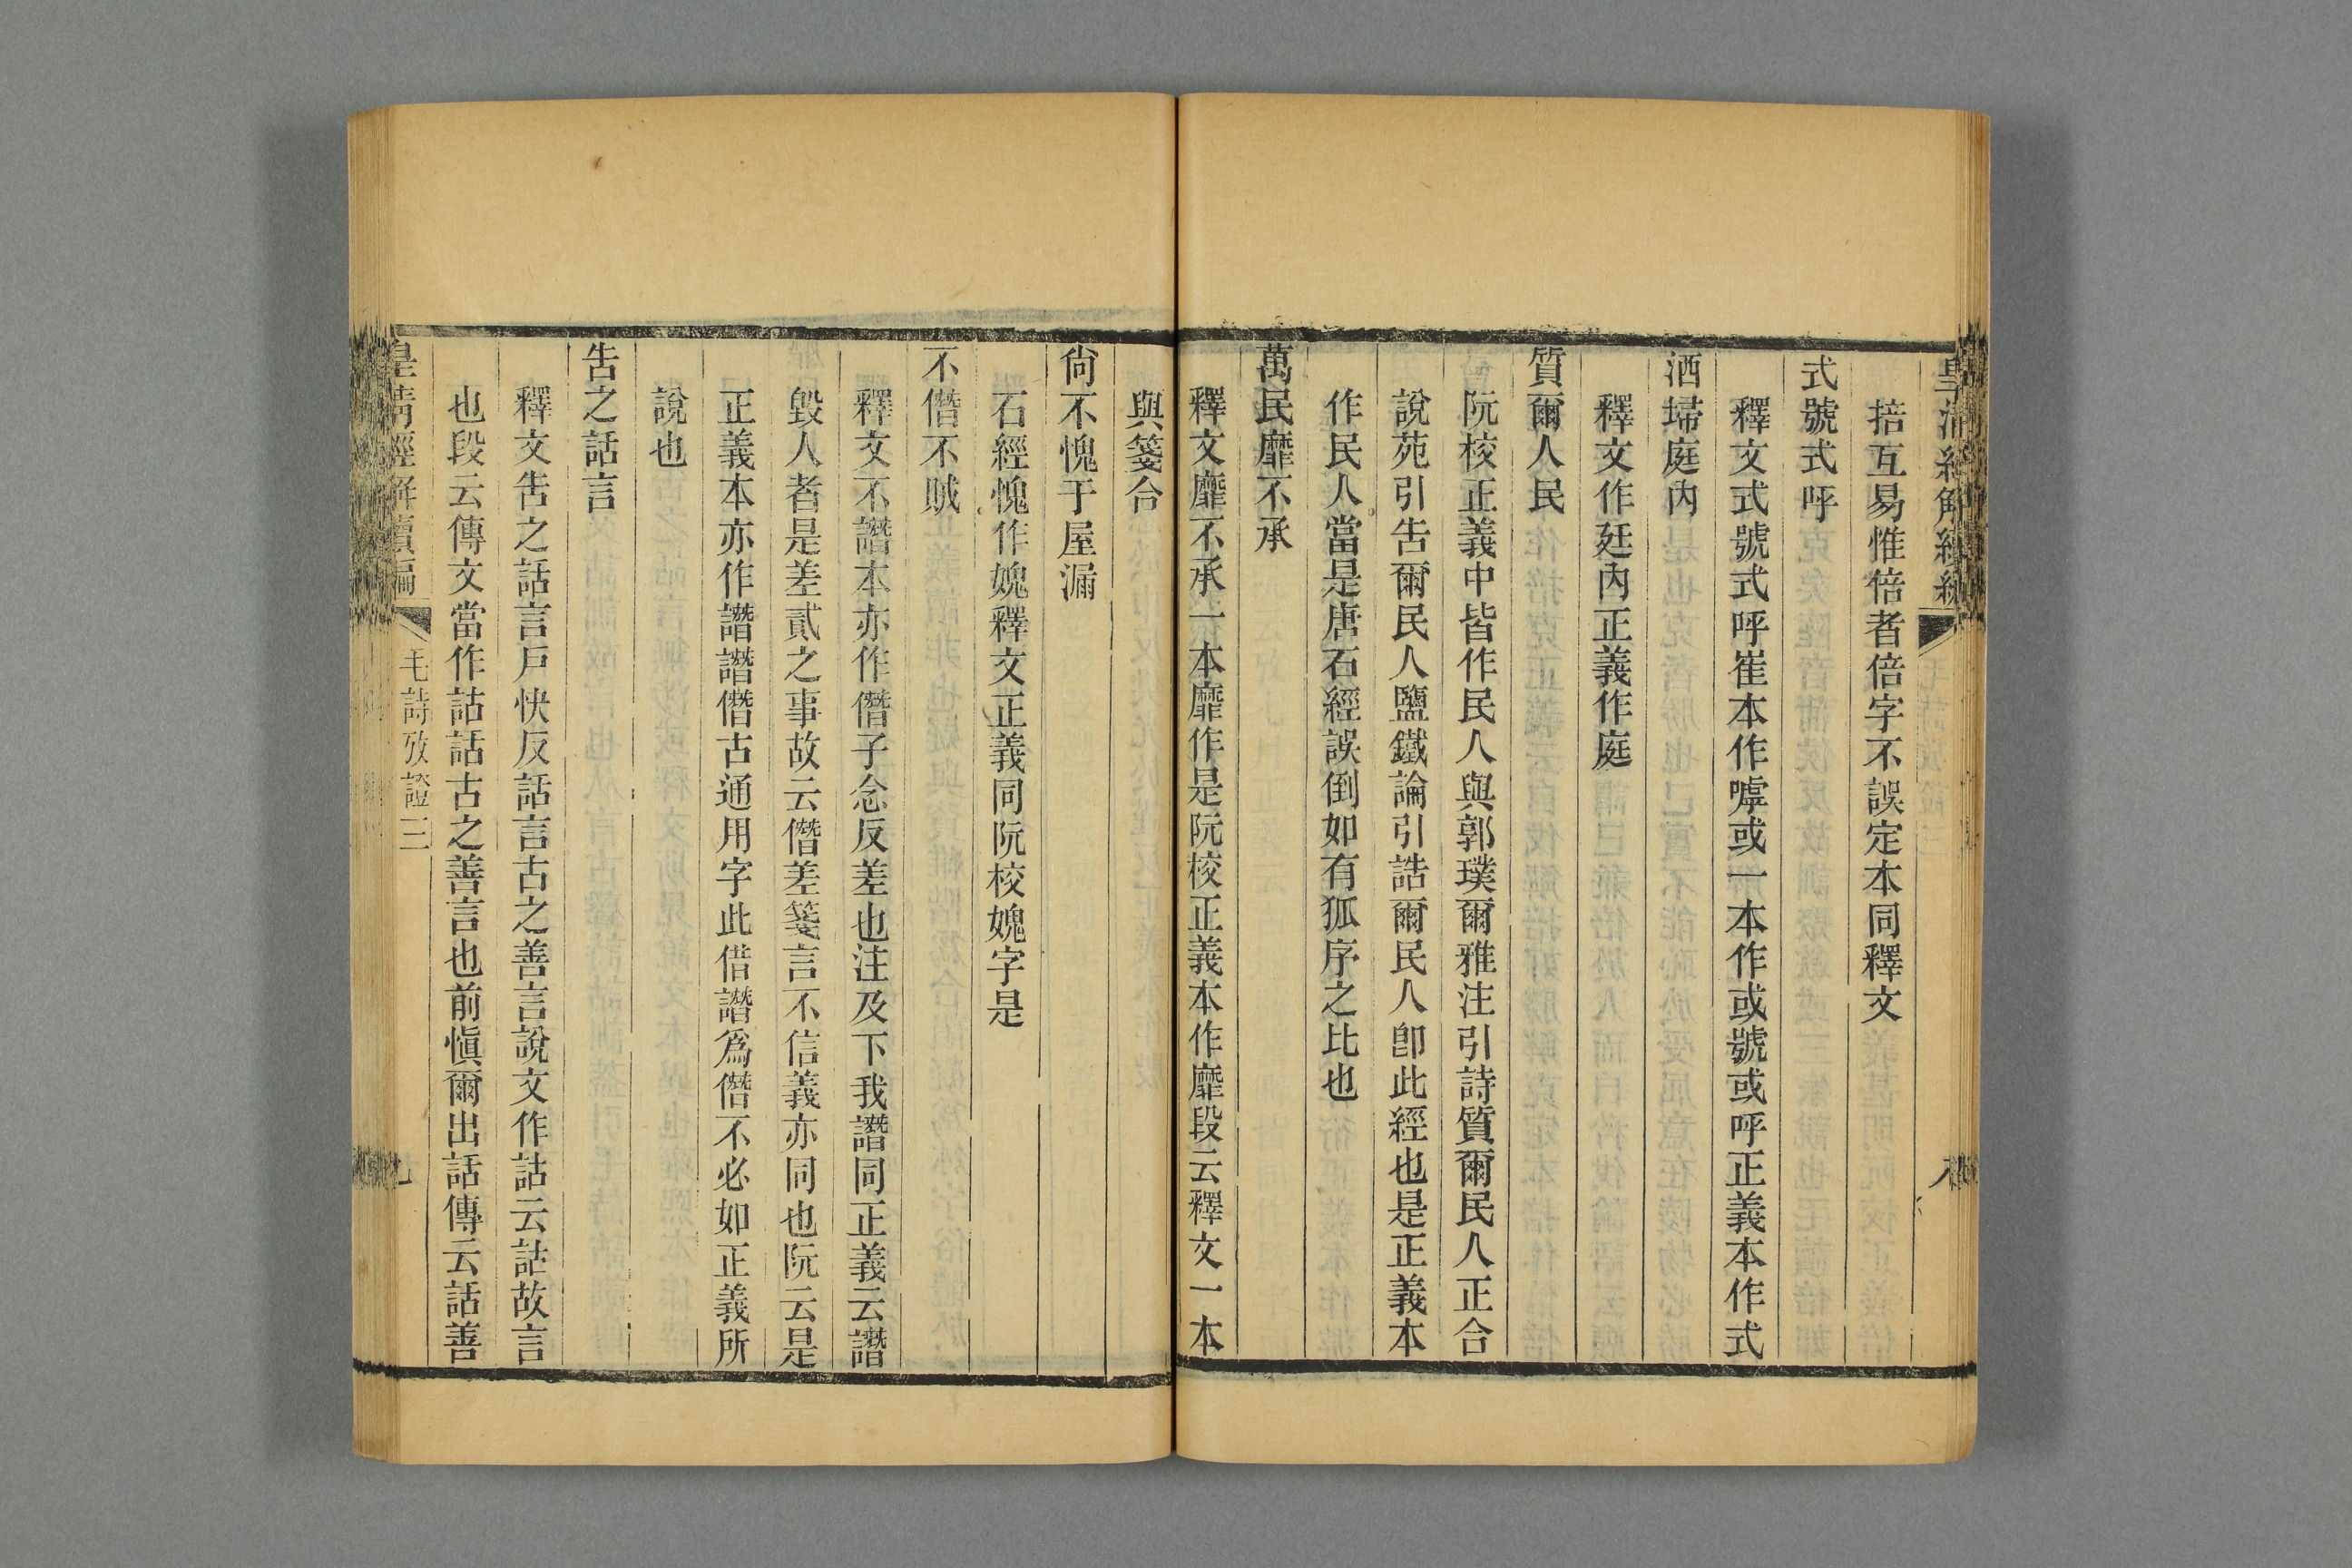 掊互易惟倍者倍字不誤定本同釋文
式號式呼
釋文式號式呼崔本作嘑或一本作或號或呼正義本作式
洒埽庭內
釋文作廷內正義作庭
質爾人民
阮校正義中皆作民人與郭璞爾雅注引詩質爾民人正合
說苑引告爾民人鹽鐵論引誥爾民人卽此經也是正義本
作民人當是唐石經誤倒如有狐序之比也
萬民靡不承
釋文靡不承一本靡作是阮校正義本作靡段云釋文一本
與箋合
尙不愧于屋漏
石經愧作媿釋文正義同阮校媿字是
不僭不賊
釋文不譖本亦作僭子念反差也注及下我譖同正義云譖
毀人者是差貳之事故云僭差箋言不信義亦同也阮云是
正義本亦作譖譖僭古通用字此借譖爲僭不必如正義所
說也
告之話言
釋文告之話言戶快反話言古之善言說文作詁云詁故言
也段云傳文當作詁話古之善言也前愼爾出話傳云話善
皇清經解續編
毛詩攷證三